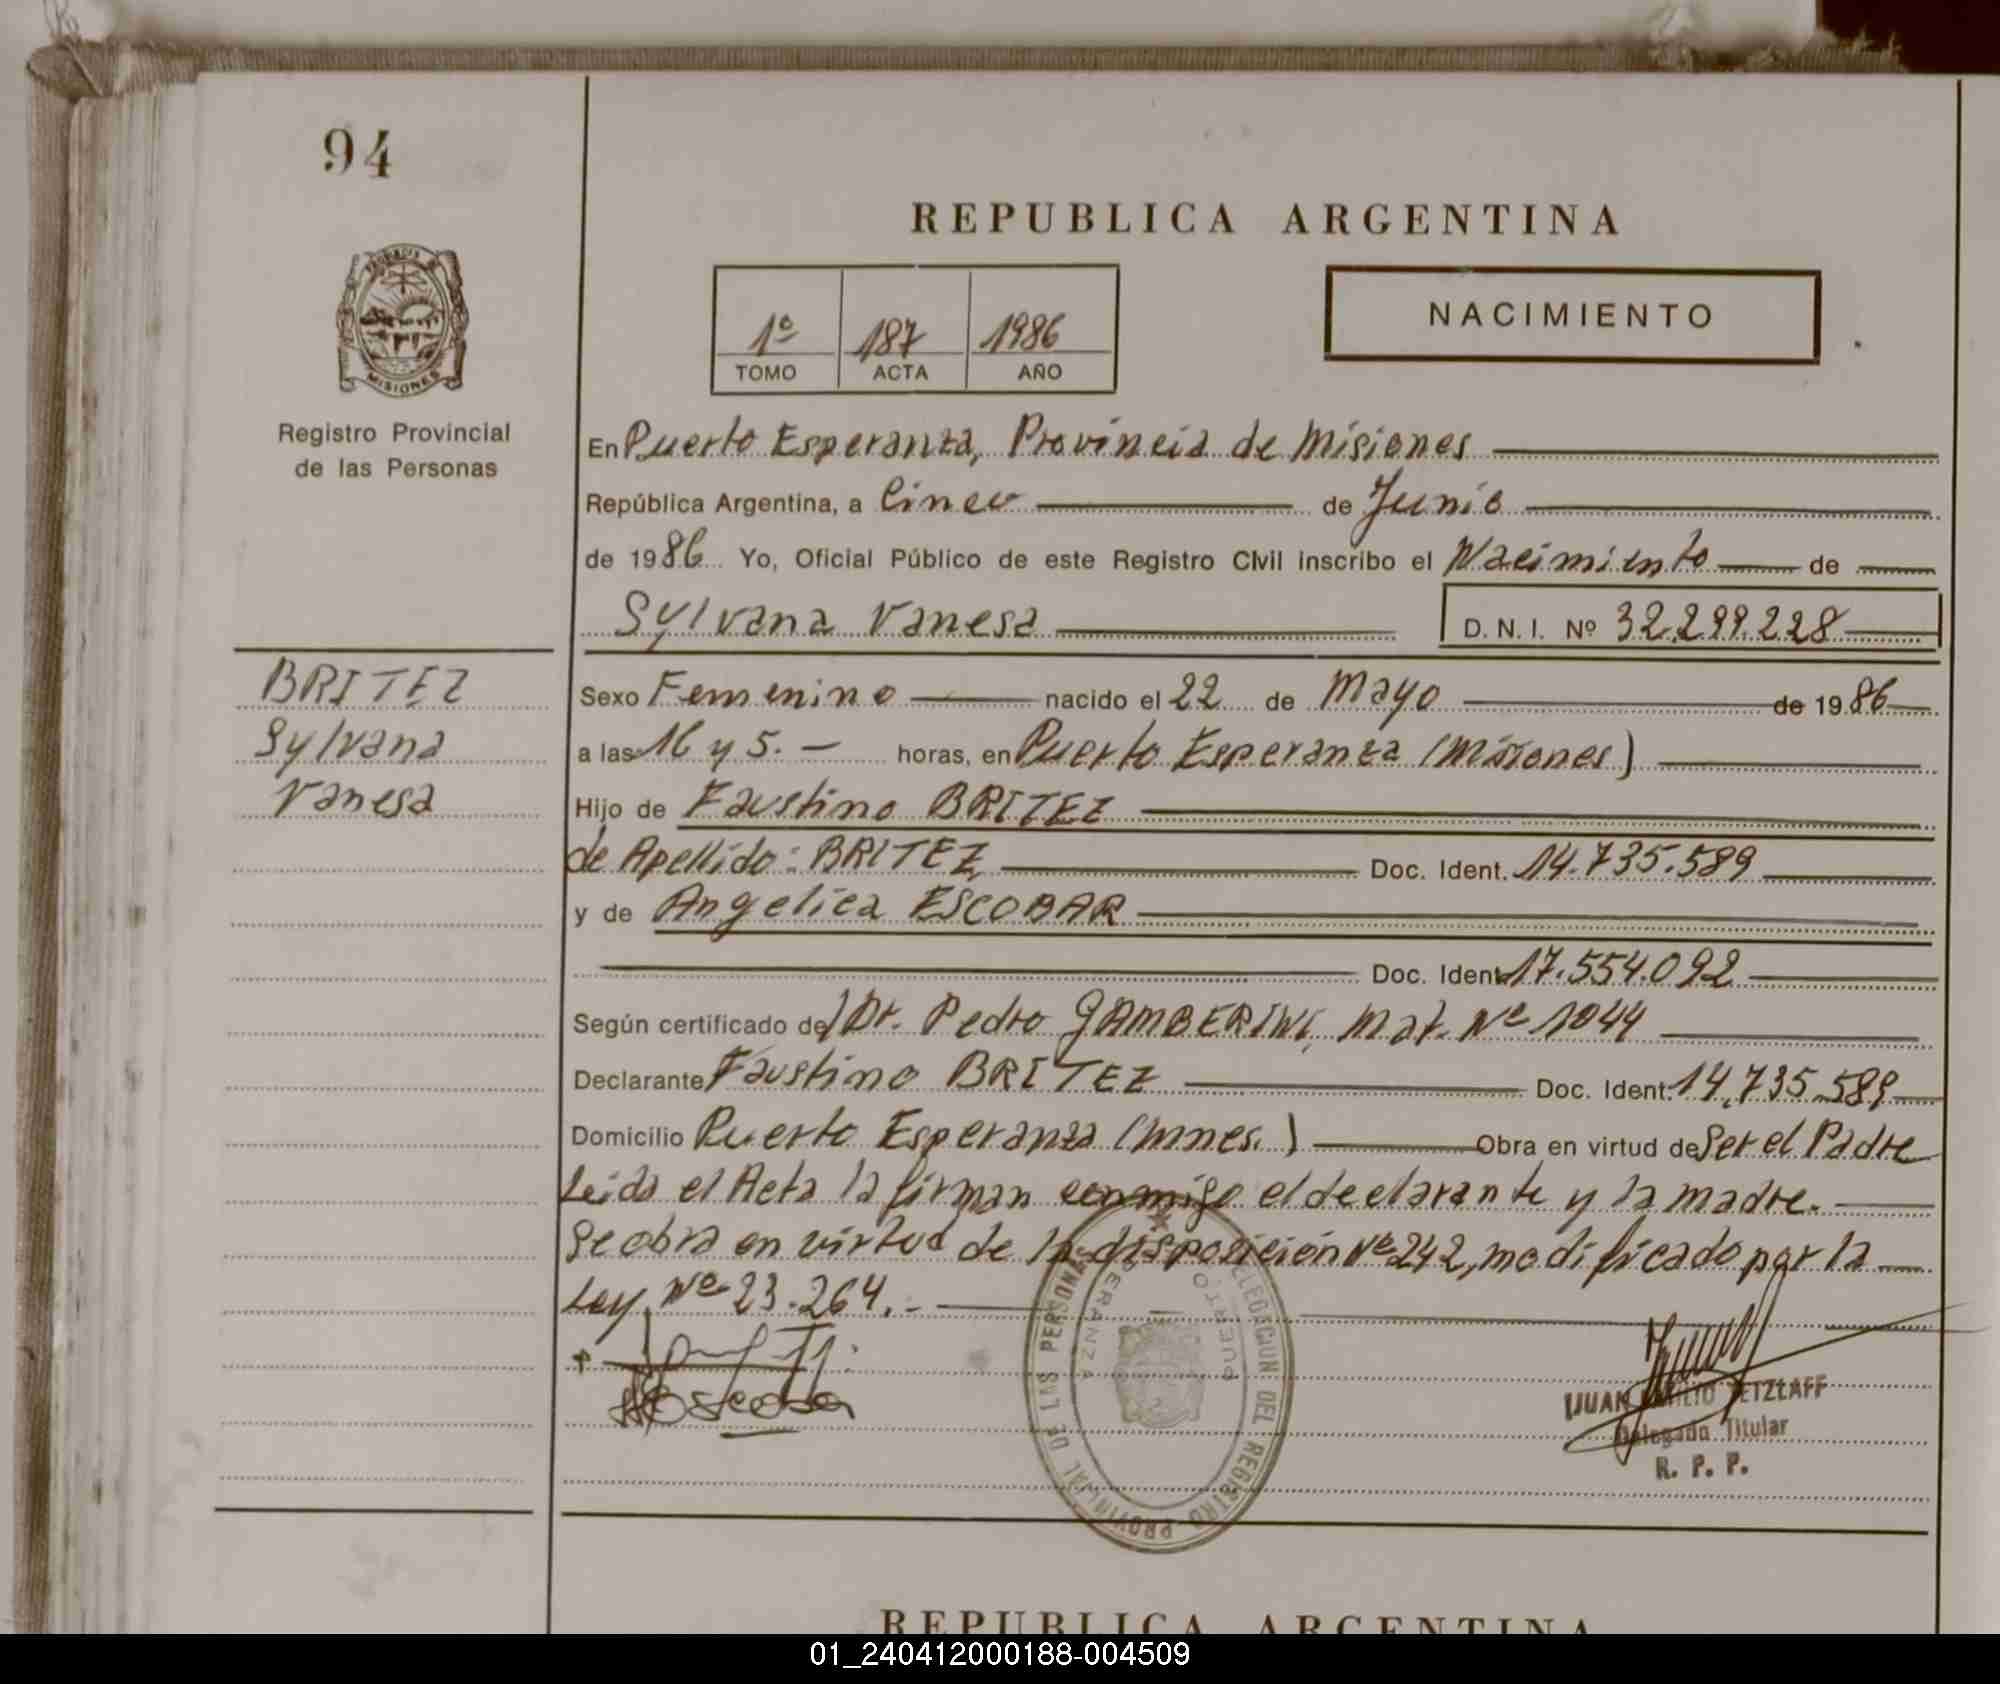 94
REPUBLICA ARGENTINA
NACIMIENTO
1º 187 1986
TOMO ACTA AÑO
PROVINCIA DE
MISIONES
Registro Provincial
de las Personas
En Puerto Esperanza, Provincia de Misiones
República Argentina, a Cinco de Junio
de 1986 Yo, Oficial Público de este Registro Civil inscribo el Nacimiento de
Sylvana Vanesa D. N. I. Nº 32.299.228
BRITEZ
Sylvana
Vanesa
Sexo Femenino nacido el 22 de Mayo de 1986
a las 16 y 5. horas, en Puerto Esperanza (Misiones)
Hijo de Faustino BRITEZ
de Apellido: BRITEZ Doc. Ident. 14.735.589
y de Angelica ESCOBAR
Doc. Ident. 17.554.092
Según certificado de/ Dr. Pedro GAMBERINI, Mat. Nº 1044
Declarante Faustino BRITEZ Doc. Ident. 14.735.589
Domicilio Puerto Esperanza (Mnes.) Obra en virtud de Ser el Padre
Leida el Acta la firman conmigo el declarante y la madre.
Se obra en virtud de la disposición Nº 242, modificado por la
Ley Nº 23.264.-
Escobar
DELEGACION DEL REGISTRO PROVINCIAL DE LAS PERSONAS
PUERTO ESPERANZA
JUAN EMILIO TETZLAFF
Delegado Titular
R. P. P.
REPUBLICA ARGENTINA
01_240412000188-004509